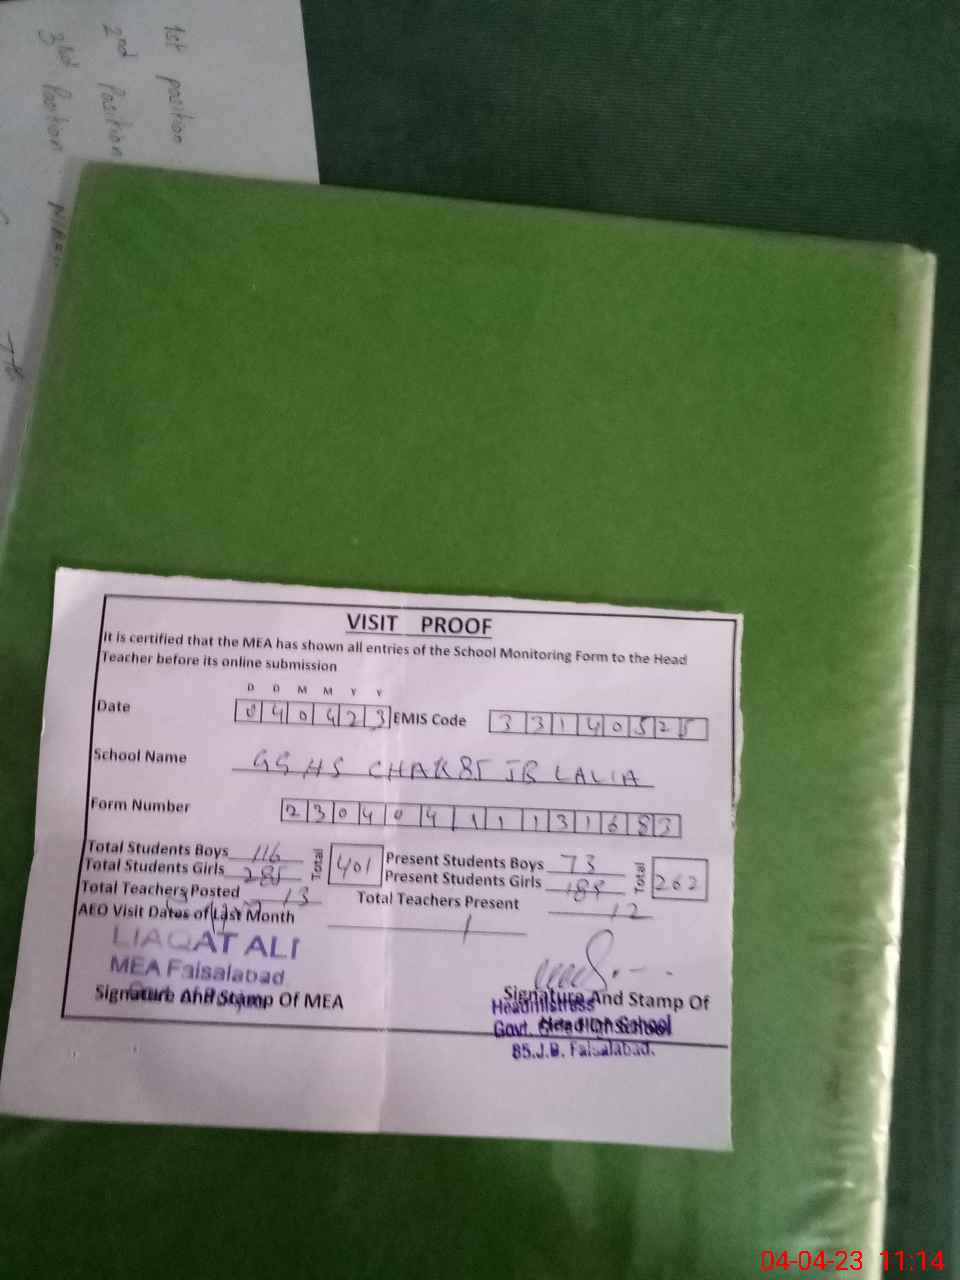 1st position
2nd Position
3rd Position
VISIT PROOF
It is certified that the MEA has shown all entries of the School Monitoring Form to the Head
Teacher before its online submission
D D M M Y Y
Date 040423 EMIS Code 33140525
School Name GGHS CHAK 85 JB LALIA
Form Number 23040411131683
Total Students Boys 116 Total 401 Present Students Boys 73 Total 262
Total Students Girls 285 Present Students Girls 189
Total Teachers Posted 13 Total Teachers Present 12
AEO Visit Dates of Last Month 1
LIAQAT ALI
MEA Faisalabad
Signature And Stamp Of MEA
Signature And Stamp Of
Headmistress
Govt. High School
85.J.B. Faisalabad.
04-04-23 11:14